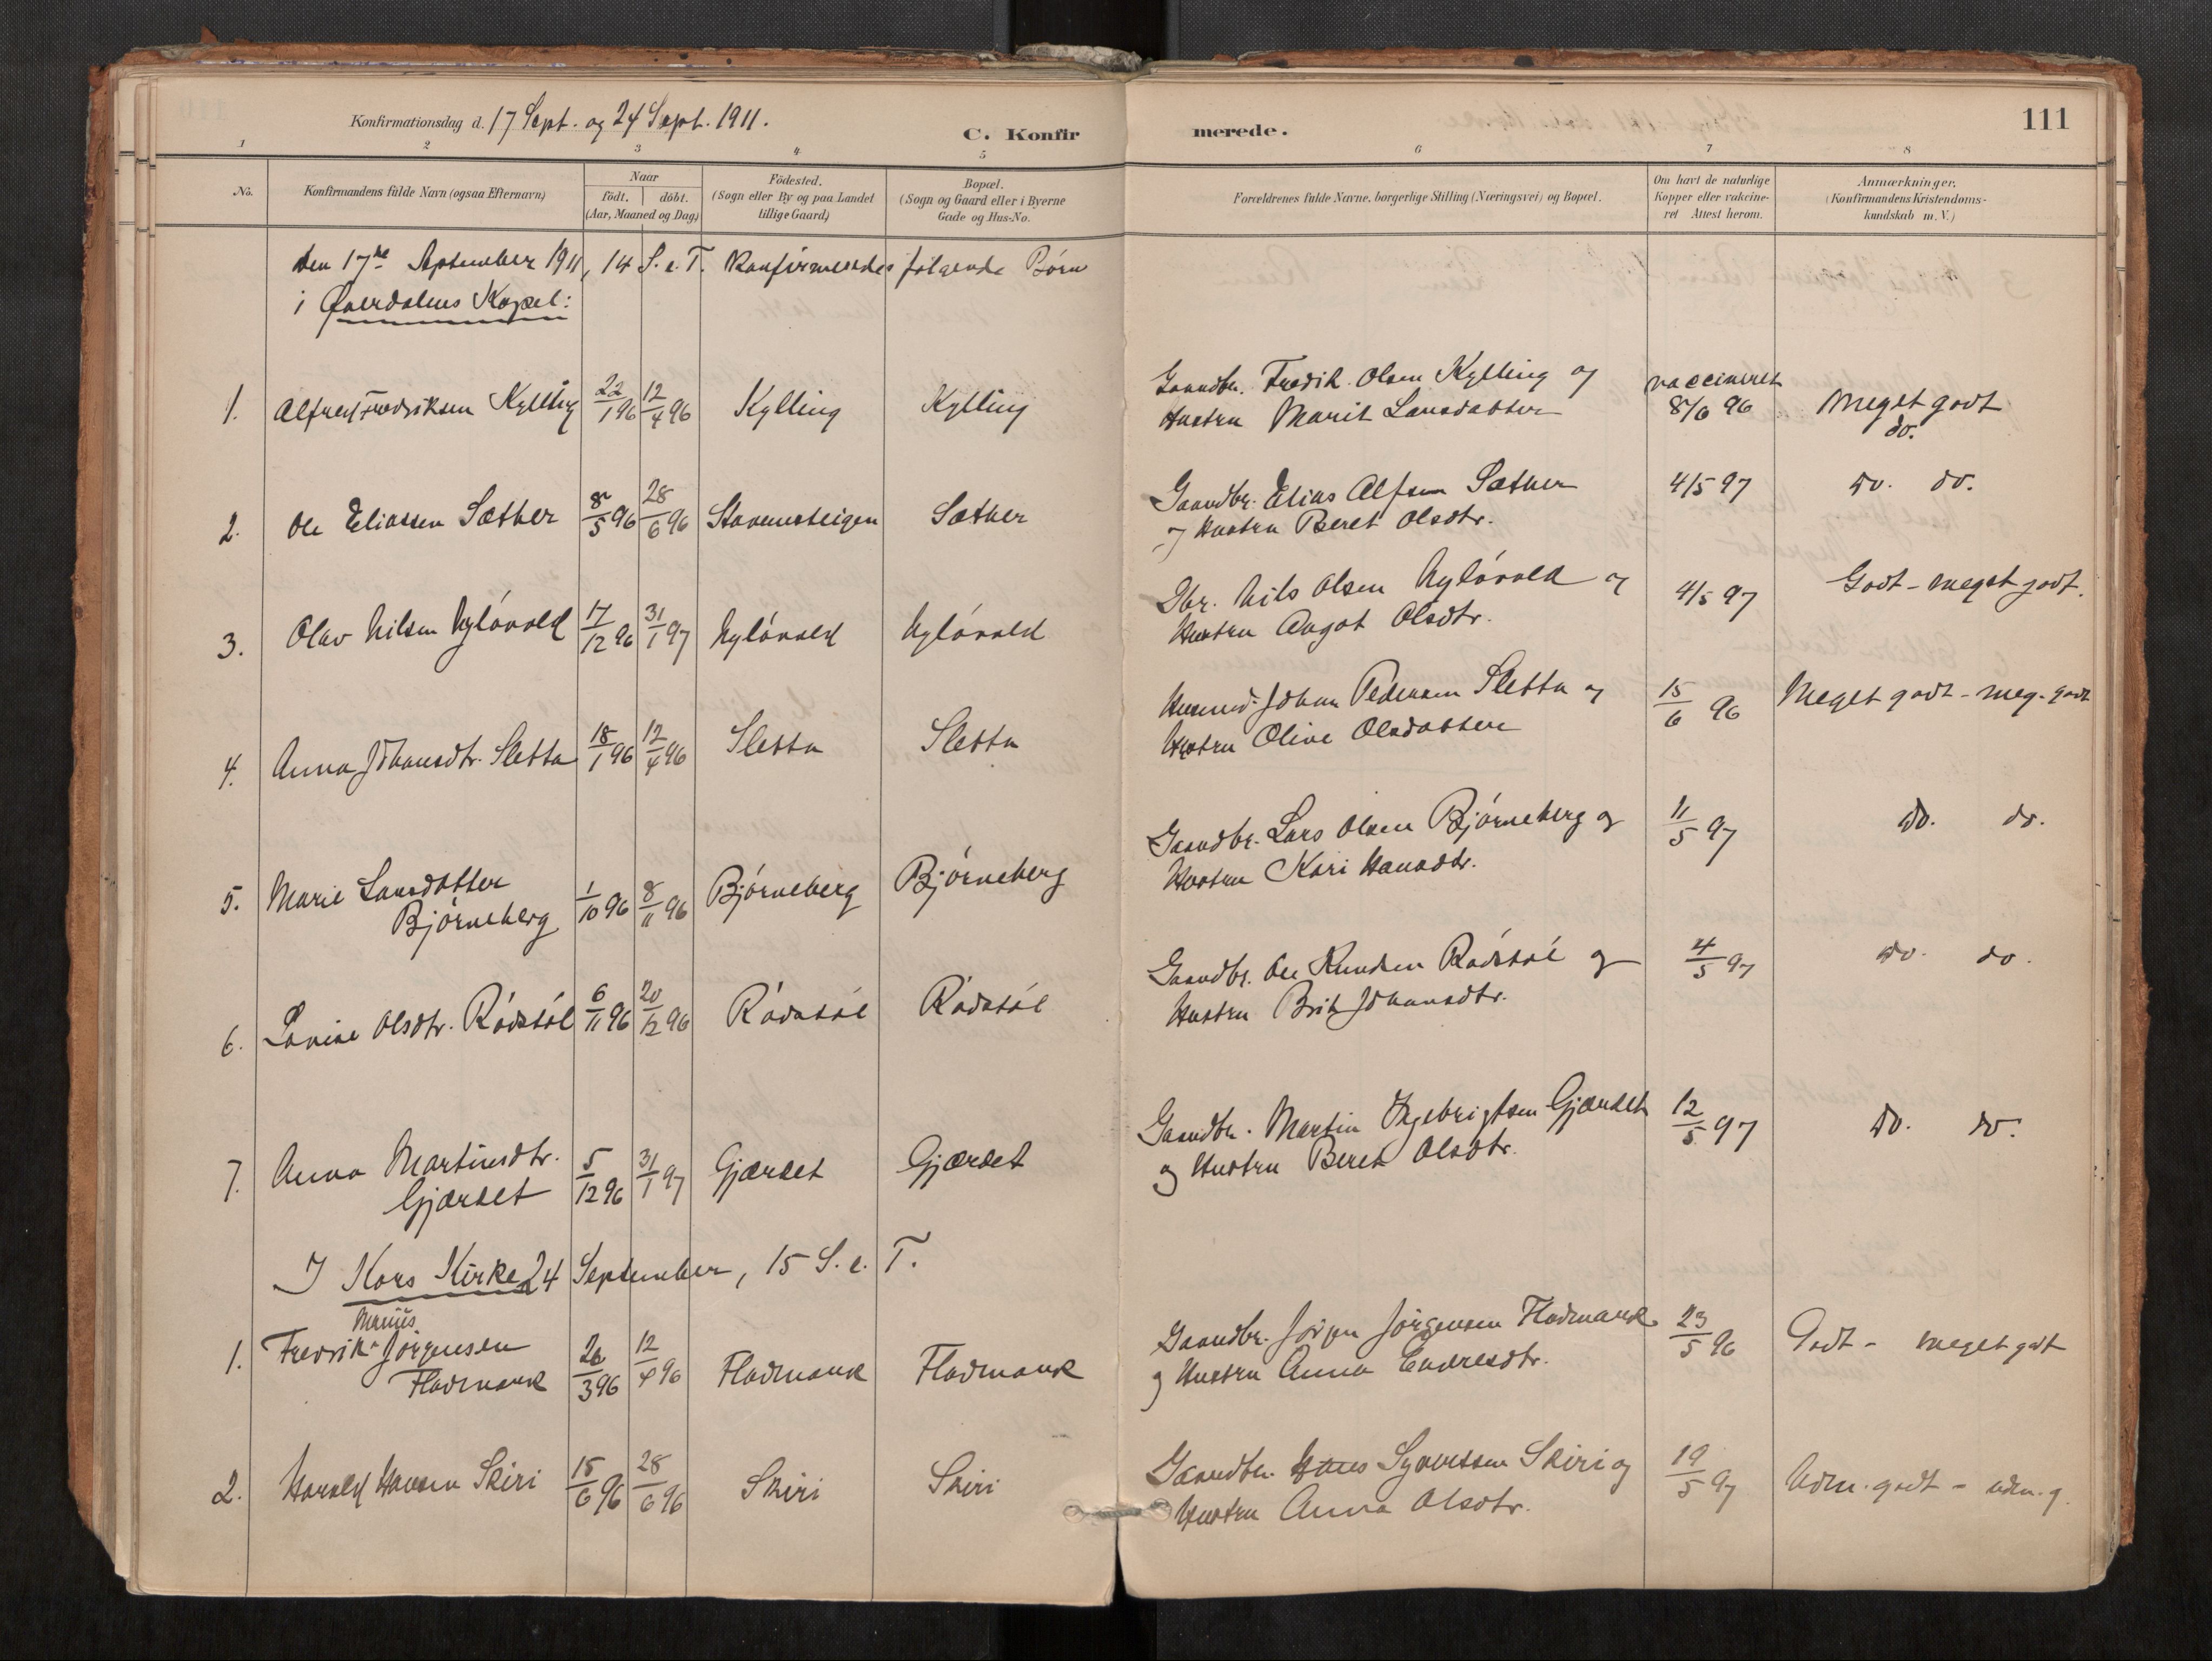 Konfirmationsdag d. 17 Sept. og 24 Sept. 1911.
C. Konfirmerede.
111
1 2 3 4 5 6 7 8
No.
Konfirmandens fulde Navn (ogsaa Efternavn)
Naar
födt. döbt.
(Aar, Maaned og Dag)
Födested.
(Sogn eller By og paa Landet
tillige Gaard)
Bopæl.
(Sogn og Gaard eller i Byerne
Gade og Hus-No.
Forældrenes fulde Navne, borgerlige Stilling (Næringsvei) og Bopæl.
Om havt de naturlige
Kopper eller vakcine-
ret Attest herom.
Anmærkninger.
(Konfirmandens Kristendoms-
kundskab m. V.)
den 17de September 1911, 14 S. e. T. Konfirmeredes følgende Børn
i Øverdalens Kapel:
1. Alfred Fredriksen Kylling 22/1 96 12/4 96 Kylling Kylling
Gaardbr. Fredik Olsen Kylling og
Hustru Marit Larsdatter
vaccineret
8/6 96
Meget godt
do.
2. Ole Eliassen Sæther 8/5 96 28/6 96 Stavemsteigen Sæther
Gaardbr. Elias Alfsen Sæther
og Hustru Beret Olsdtr.
4/5 97
do. do.
3. Olav Nilsen Nyløvold 17/12 96 31/1 97 Nyløvold Nyløvold
Gbr. Nils Olsen Nyløvold og
Hustru Angot Olsdtr.
4/5 97
Godt - meget godt.
4. Anna Johansdtr. Sletta 18/1 96 12/4 96 Sletta Sletta
Husmd. Johan Pedersen Sletta og
Hustru Oline Olsdatter
15/6 96
Meget godt - meg. godt
5. Marie Larsdatter
Bjørneberg 1/10 96 8/11 96 Bjørneberg Bjørneberg
Gaardbr. Lars Olsen Bjørneberg og
Hustru Kari Hansdtr.
11/5 97
do. do.
6. Lovise Olsdtr. Rødstøl 6/11 96 20/12 96 Rødstøl Rødstøl
Gaardbr. Ole Knudsen Rødstøl og
Hustru Brit Johansdtr.
4/5 97
do. do.
7. Anna Martinsdtr.
Gjærdet 5/12 96 31/1 97 Gjærdet Gjærdet
Gaardbr. Martin Ingebrigtsen Gjærdet
og Hustru Beret Olsdtr.
12/5 97
do. do.
I Kors Kirke 24 September, 15 S. e. T.
Marius
1. Fredrik Jørgensen
Fladmark 26/3 96 12/4 96 Fladmark Fladmark
Gaardbr. Jørgen Jørgensen Fladmark
og Hustru Anna Endresdtr.
23/5 96
Godt - meget godt
2. Harald Hansen Skiri 15/6 96 28/6 96 Skiri Skiri
Gaardbr. Hans Syversen Skiri og
Hustru Anna Olsdtr.
19/5 97
Udm. godt - udm. g.